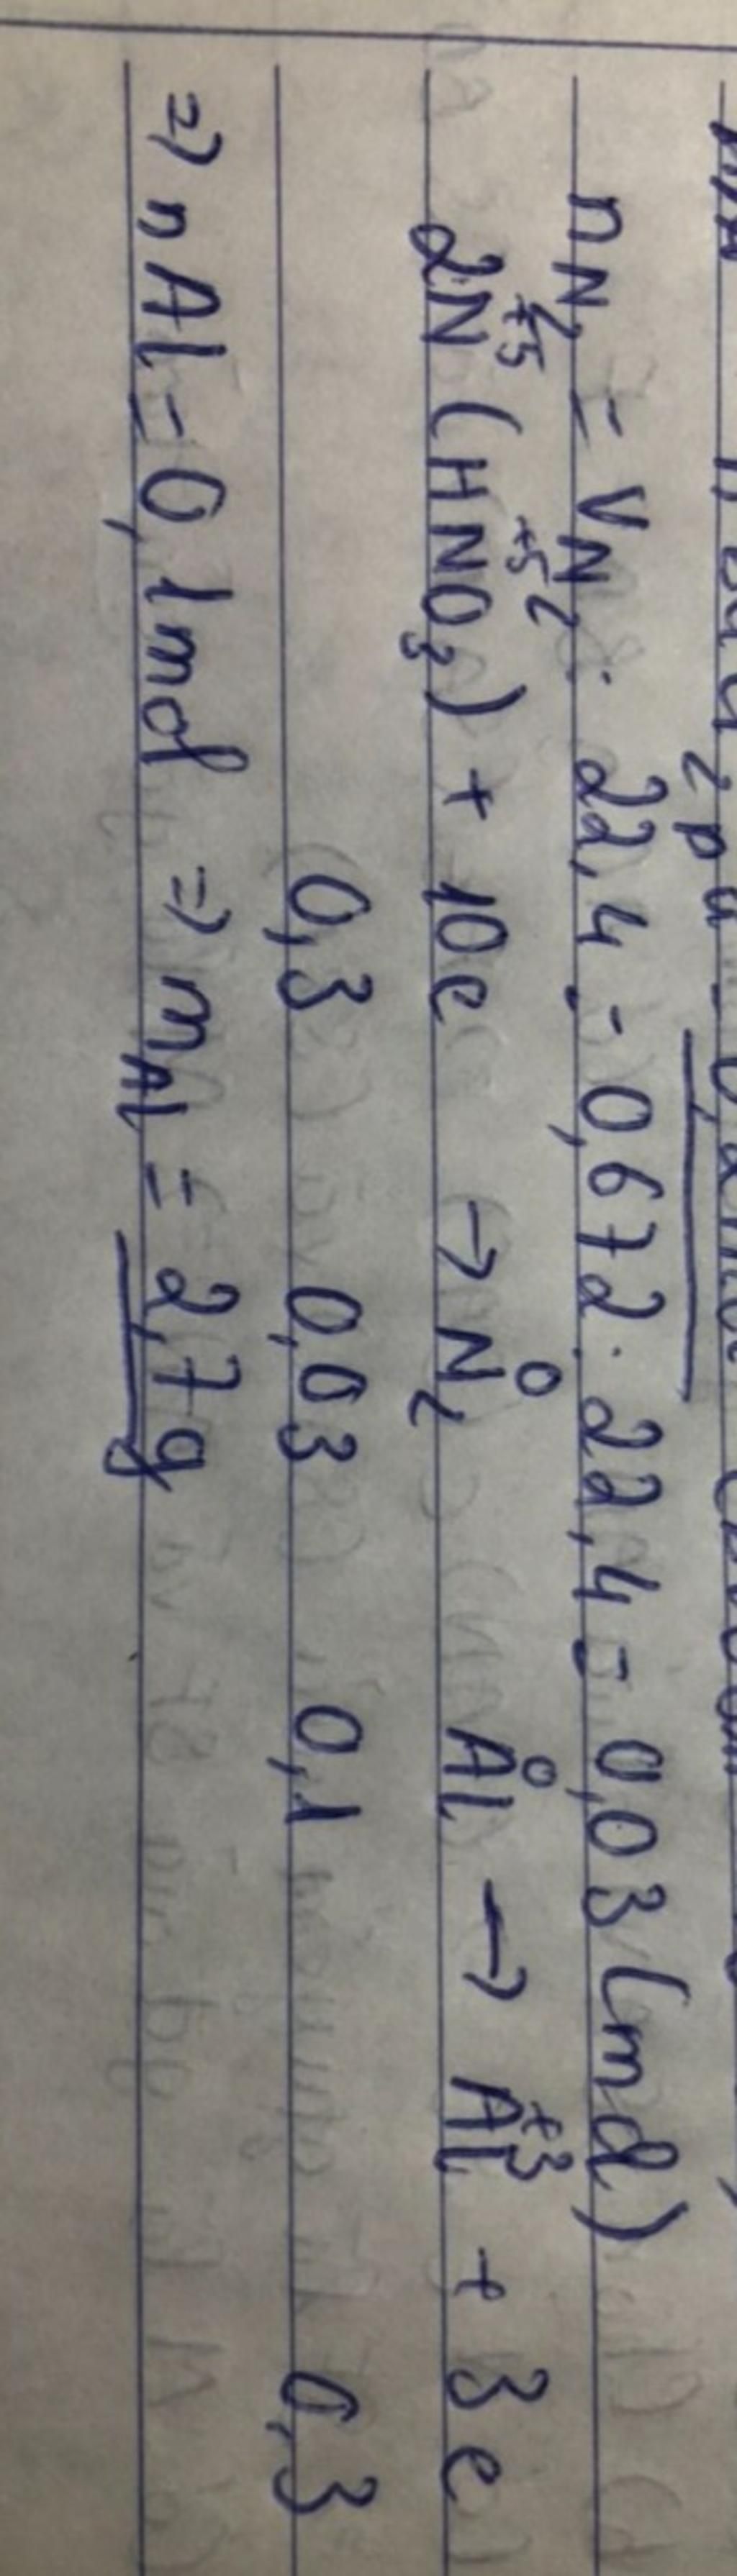 n N₂ = V N₂ : 22,4 = 0,672 : 22,4 = 0,03 (mol)
2N⁺⁵ (HN⁺⁵O₃) + 10e → N₂⁰ Al⁰ → Al⁺³ + 3e
0,3 0,03 0,1 0,3
=> n Al = 0,1mol => m Al = 2,7g